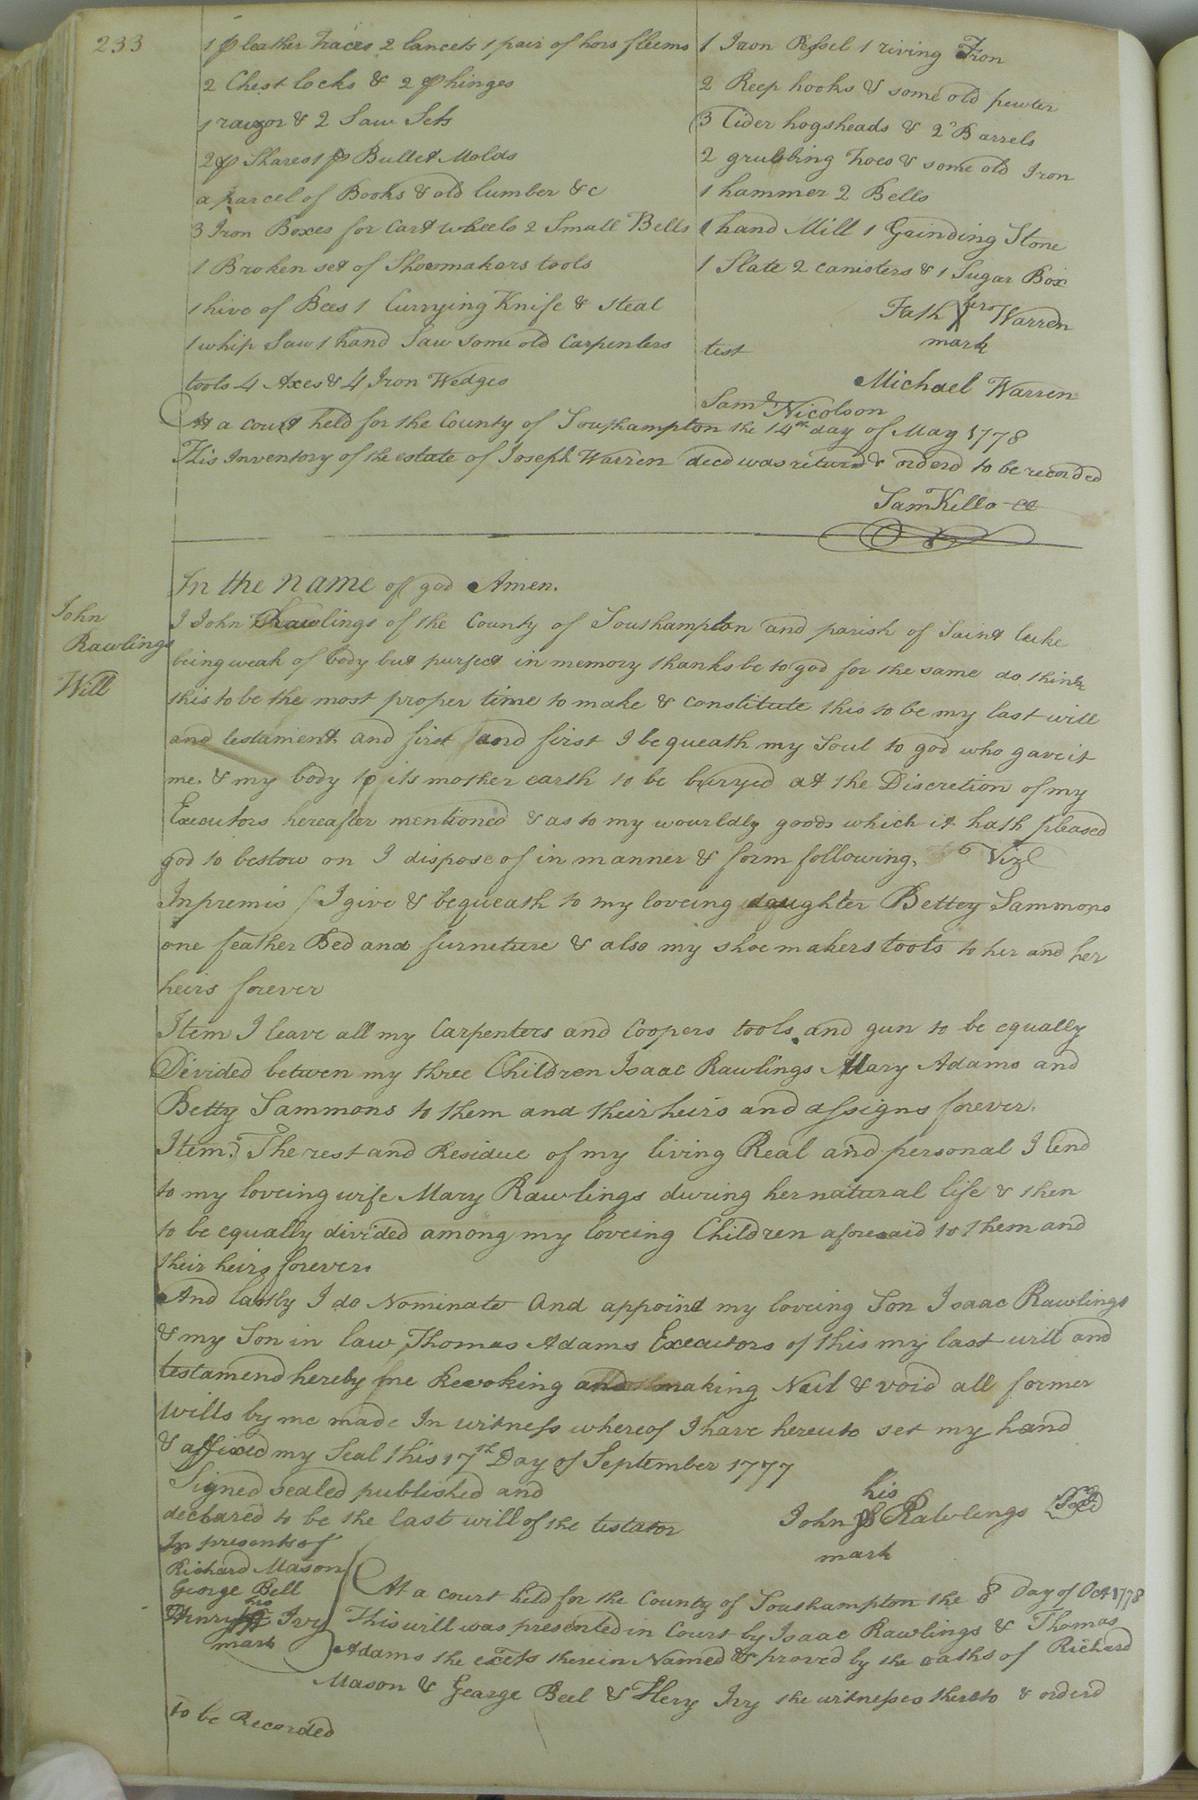 233
1 p leather Traces 2 lancets 1 pair of hors fleems
2 Chest locks & 2 p hinges
1 raizor & 2 Saw Sets
2 p Shares 1 p Bullet Molds
a parcel of Books & old lumber &c
3 Iron Boxes for Cart wheels 2 Small Bells
1 Broken set of Shoemakers tools
1 hive of Bees 1 Currying Knife & Steal
1 whip Saw 1 hand Saw some old Carpenters
tools 4 Axes & 4 Iron Wedges
1 Iron 1 riving Iron
2 Reep hooks & some old pewter
3 Cider hogsheads & 2 Barrels
2 grubbing hoes & some old Iron
1 hammer 2 Bells
1 hand Mill 1 Grinding Stone
1 Slate 2 canisters & 1 Sugar Box
Faith her Warren
mark
test
Michael Warren
Saml Nicolson
At a court held for the County of Southampton the 14th day of May 1778
This Inventory of the estate of Joseph Warren decd was returd & orderd to be recorded
Sam Kello CC
John
Rawlings
Will
In the name of god Amen.
I John Rawlings of the County of Southampton and parish of Saint luke
being weak of body but purfect in memory thanks be to god for the same do think
this to be the most proper time to make & constitute this to be my last will
and testament and first and first I bequeath my Soul to god who gave it
me & my body to its mother earth to be burryed at the Discretion of my
Executors hereafter mentioned & as to my wourldly goods which it hath pleased
god to bestow on I dispose of in manner & form following, Vizt
Inpremis I give & bequeath to my loveing daughter Bettey Sammons
one feather Bed and furneture & also my shoemakers tools to her and her
heirs forever
Item I leave all my Carpenters and Coopers tools and gun to be equally
Divided betwen my three Children Isaac Rawlings Mary Adams and
Betty Sammons to them and their heirs and assigns forever.
Item. The rest and Residue of my living Real and personal I lend
to my loveing wife Mary Rawlings during her natural life & then
to be equally divided among my loveing Children aforesaid to them and
their heirs forever.
And lastly I do Nominate and appoint my loveing Son Isaac Rawlings
& my Son in law Thomas Adams Executors of this my last will and
testamend hereby me Revoking and making Nul & void all former
wills by me made In witness whereof I have hereuto set my hand
& affixed my Seal this 17th Day of September 1777
Signed sealed published and
declared to be the last will of the testator
In presents of
Richard Mason
George Bell
Henry his Ivy
mark
his
John Rawlings Seal
mark
At a court held for the County of Southampton the 8 Day of Oct 1778
This will was presented in Court by Isaac Rawlings & Thomas
Adams the therein Named & proved by the oaths of Richard
Mason & George Beel & Hery Ivy the witnesses thereto & orderd
to be Recorded